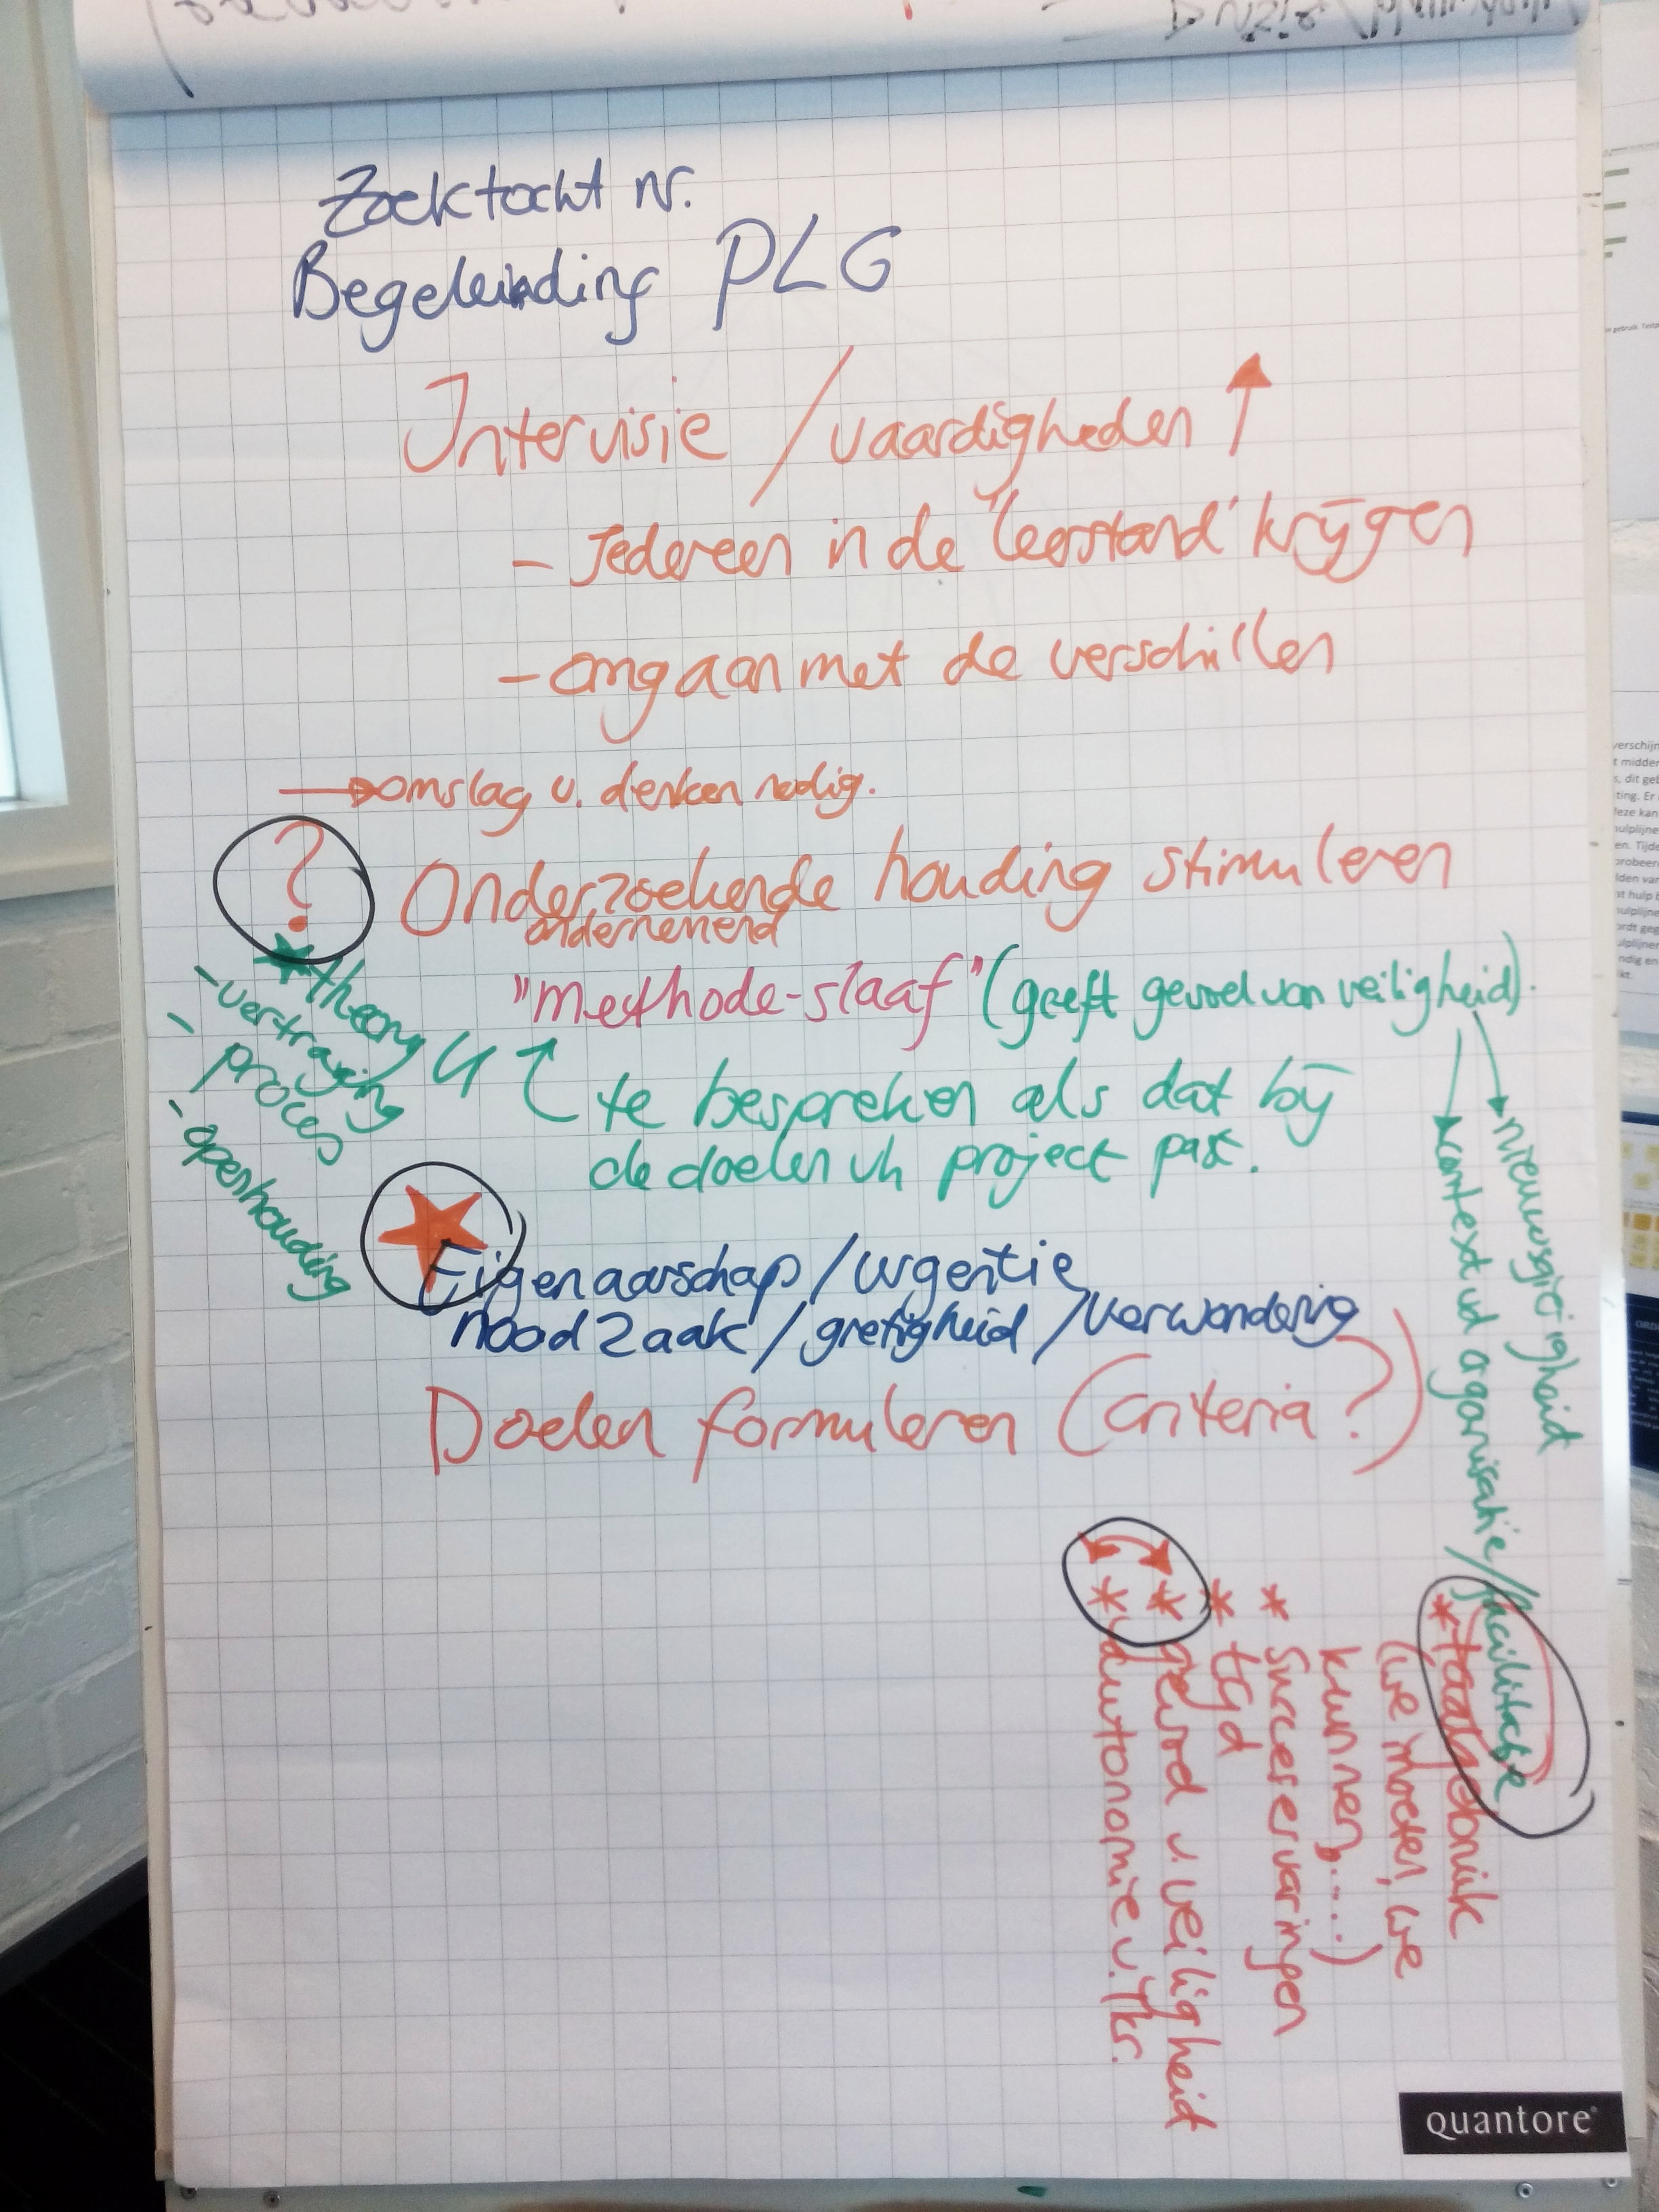 Zoektocht nr.
Begeleinding PLG
Intervisie / vaardigheden ↑
- Iedereen in de 'leerstand' krijgen
- omgaan met de verschillen
→ omslag v. denken nodig.
? Onderzoekende houding stimuleren
ondernemend
"methode-slaaf" (geeft gevoel van veiligheid).
te bespreken als dat bij
de doelen vh project past.
* theory U
- vertraging
- proces
- open houding
Eigenaarschap / urgentie
noodzaak / gretigheid / verwondering
Doelen formuleren (criteria?)
nieuwsgierigheid
context vd organisatie / facilitatie
* taalgebruik
(we moeten, we
kunnen, .....)
* succeservaringen
* tijd
* gevoel v. veiligheid
* autonomie v. lkr.
quantore